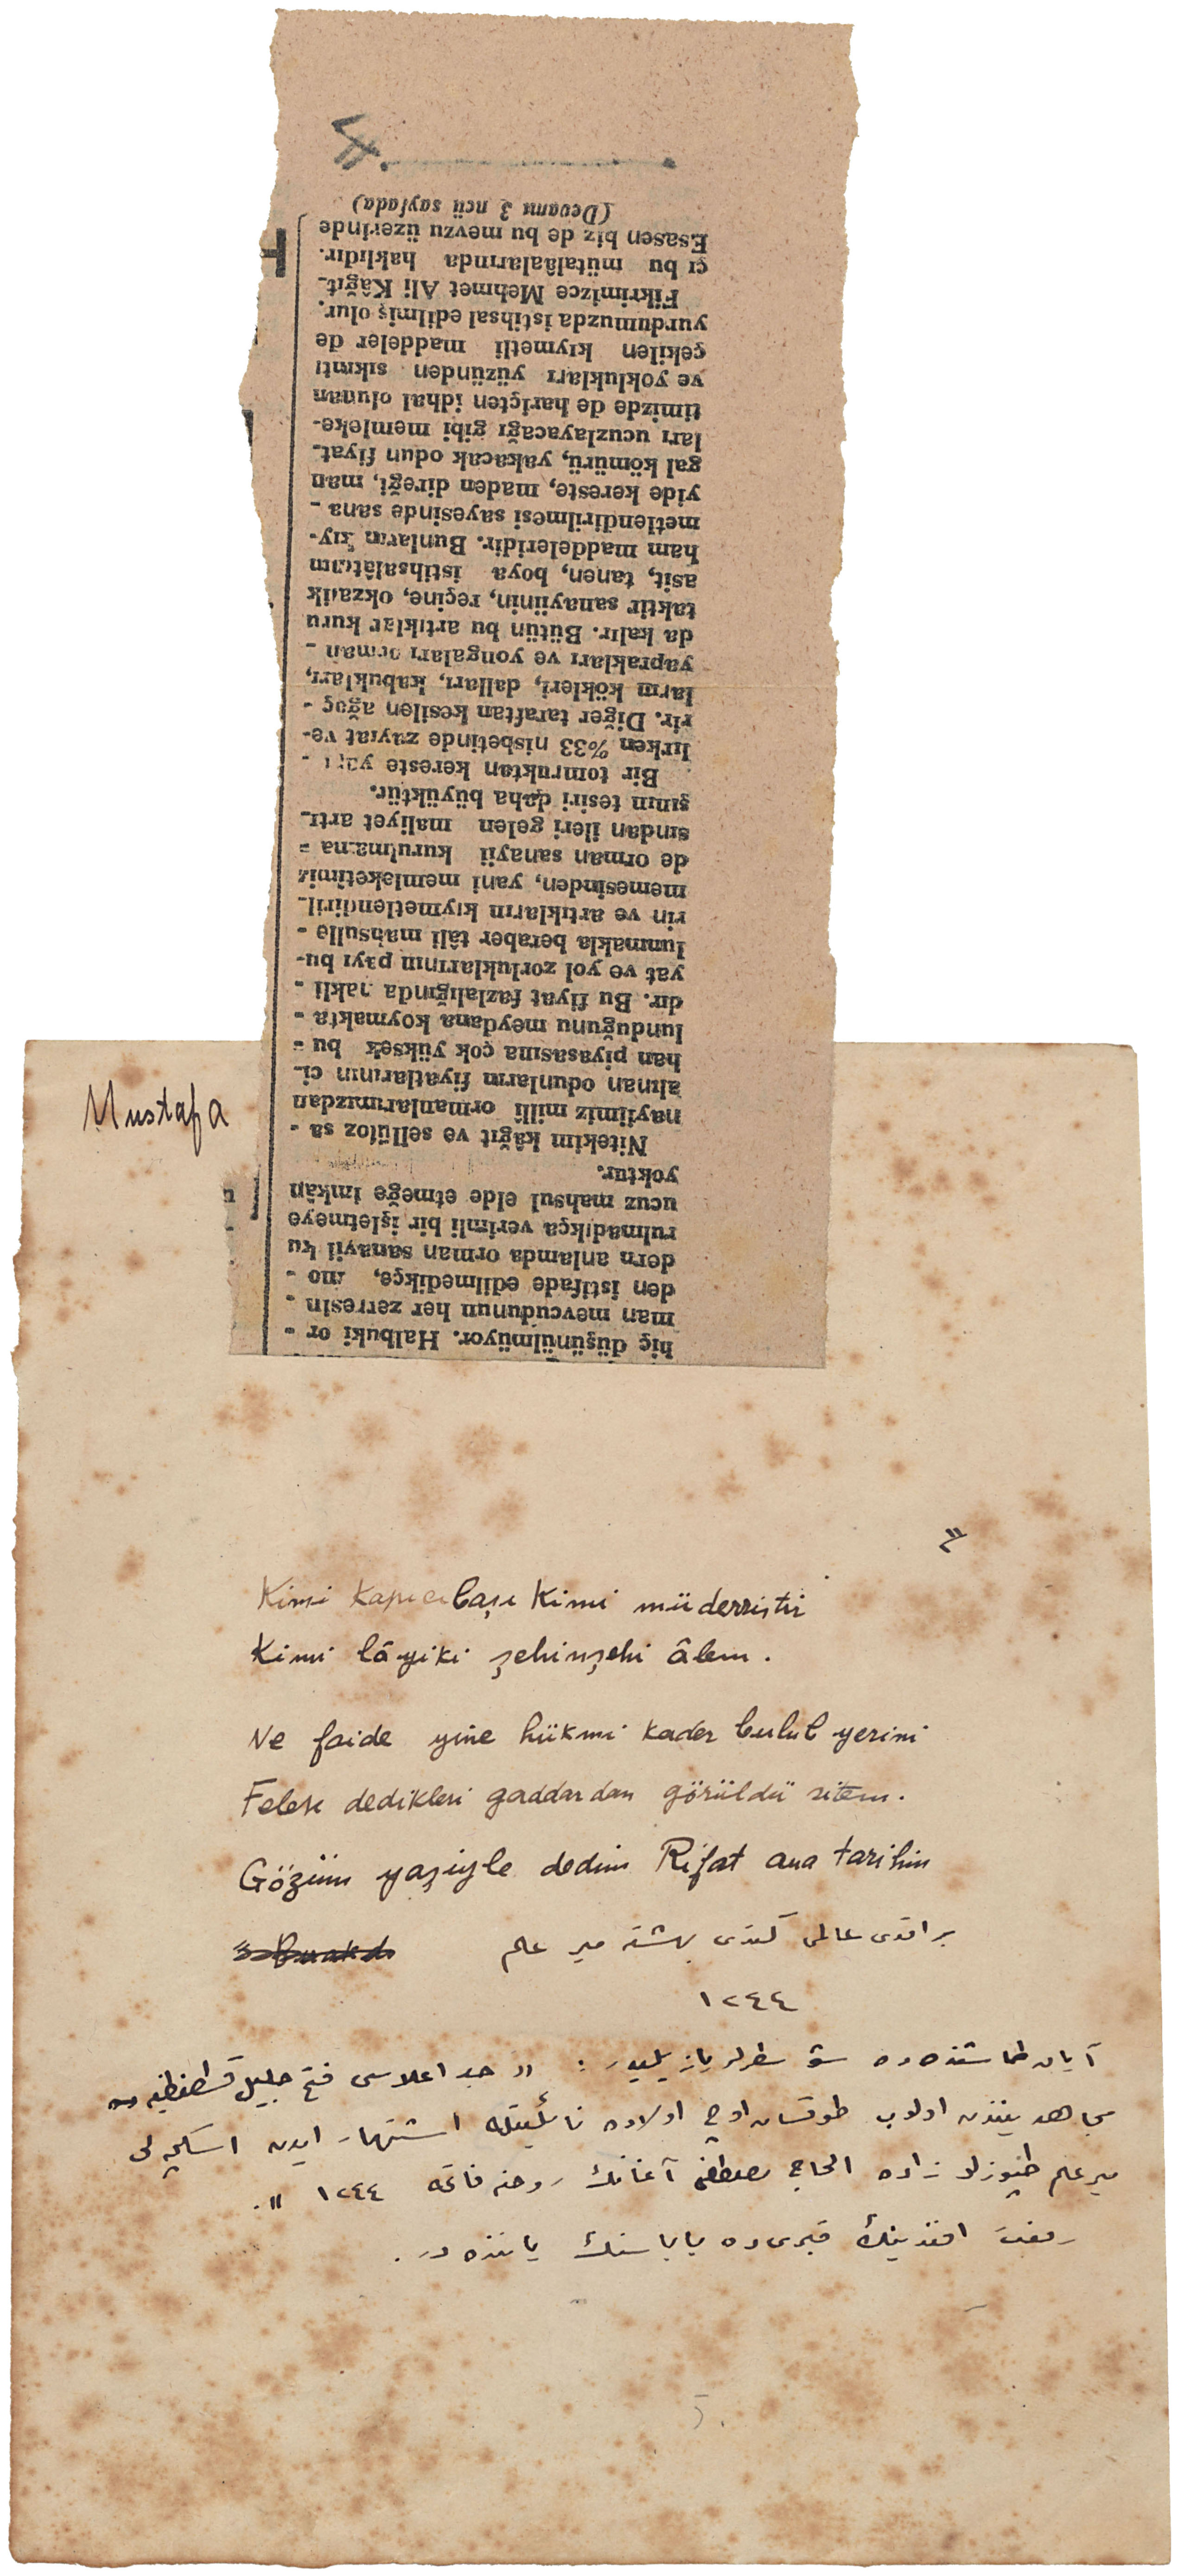 4.
hiç düşünülmüyor. Halbuki or -
man mevcudunun her zerresin -
den istifade edilmedikçe, mo -
dern anlamda orman sanayii ku
rulmadıkça verimli bir işletmeye
ucuz mahsul elde etmeğe imkân
yoktur.
Nitekim kâğıt ve sellüloz sa -
nayiimiz millî ormanlarımızdan
alınan odunların fiyatlarının ci-
han piyasasına çok yüksek bu -
lunduğunu meydana koymakta -
dır. Bu fiyat fazlalığında nakli -
yat ve yol zorluklarının payı bu-
lunmakla beraber tâli mahsulle -
rin ve artıkların kıymetlendiril-
memesinden, yani memleketimiz
de orman sanayii kurulmama -
sından ileri gelen maliyet artı-
şının tesiri daha büyüktür.
Bir tomruktan kereste yapı -
lırken %33 nisbetinde zayiat ve-
rir. Diğer taraftan kesilen ağaç -
ların kökleri, dalları, kabukları,
yaprakları ve yongaları orman -
da kalır. Bütün bu artıklar kuru
taktir sanayiinin, reçine, okzalik
asit, tanen, boya istihsalâtının
ham maddeleridir. Bunların kıy-
metlendirilmesi sayesinde sana -
yide kereste, maden direği, man
gal kömürü, yakacak odun fiyat-
ları ucuzlayacağı gibi memleke-
timizde de hariçten idhal olunan
ve yoklukları yüzünden sıkıntı
çekilen kıymetli maddeler de
yurdumuzda istihsal edilmiş olur.
Fikrimizce Mehmet Ali Kâğıt-
çı bu mütalâalarında haklıdır.
Esasen biz de bu mevzu üzerinde
(Devamı 3 ncü sayfada)
Mustafa
Kimi kapıcıbaşı kimi müderristir
Kimi lâyiki şehinşehi âlem.
Ne faide yine hükmi kader bulub yerini
Felek dedikleri gaddardan görüldü sitem.
Gözüm yaşiyle dedim Rifat ana tarihin
براقدی عالمی كیتدی بهشته میر علم
١٢٤٤
آیاق طاشنده ده شو سطرلر یازیلیدر : « جد اعلاسی فتح جلیل قسطنطنیه ده
مجاهدیندن اولوب طوقسان اوچ اولاده نائلیتله اشتهار ایدن اسكیجه لی
میر علم طیوزلو زاده الحاج مصطفی آغانك روحنه فاتحه ١٢٤٤ ».
رفعت افندینك قبری ده باباسنك یاننده در.